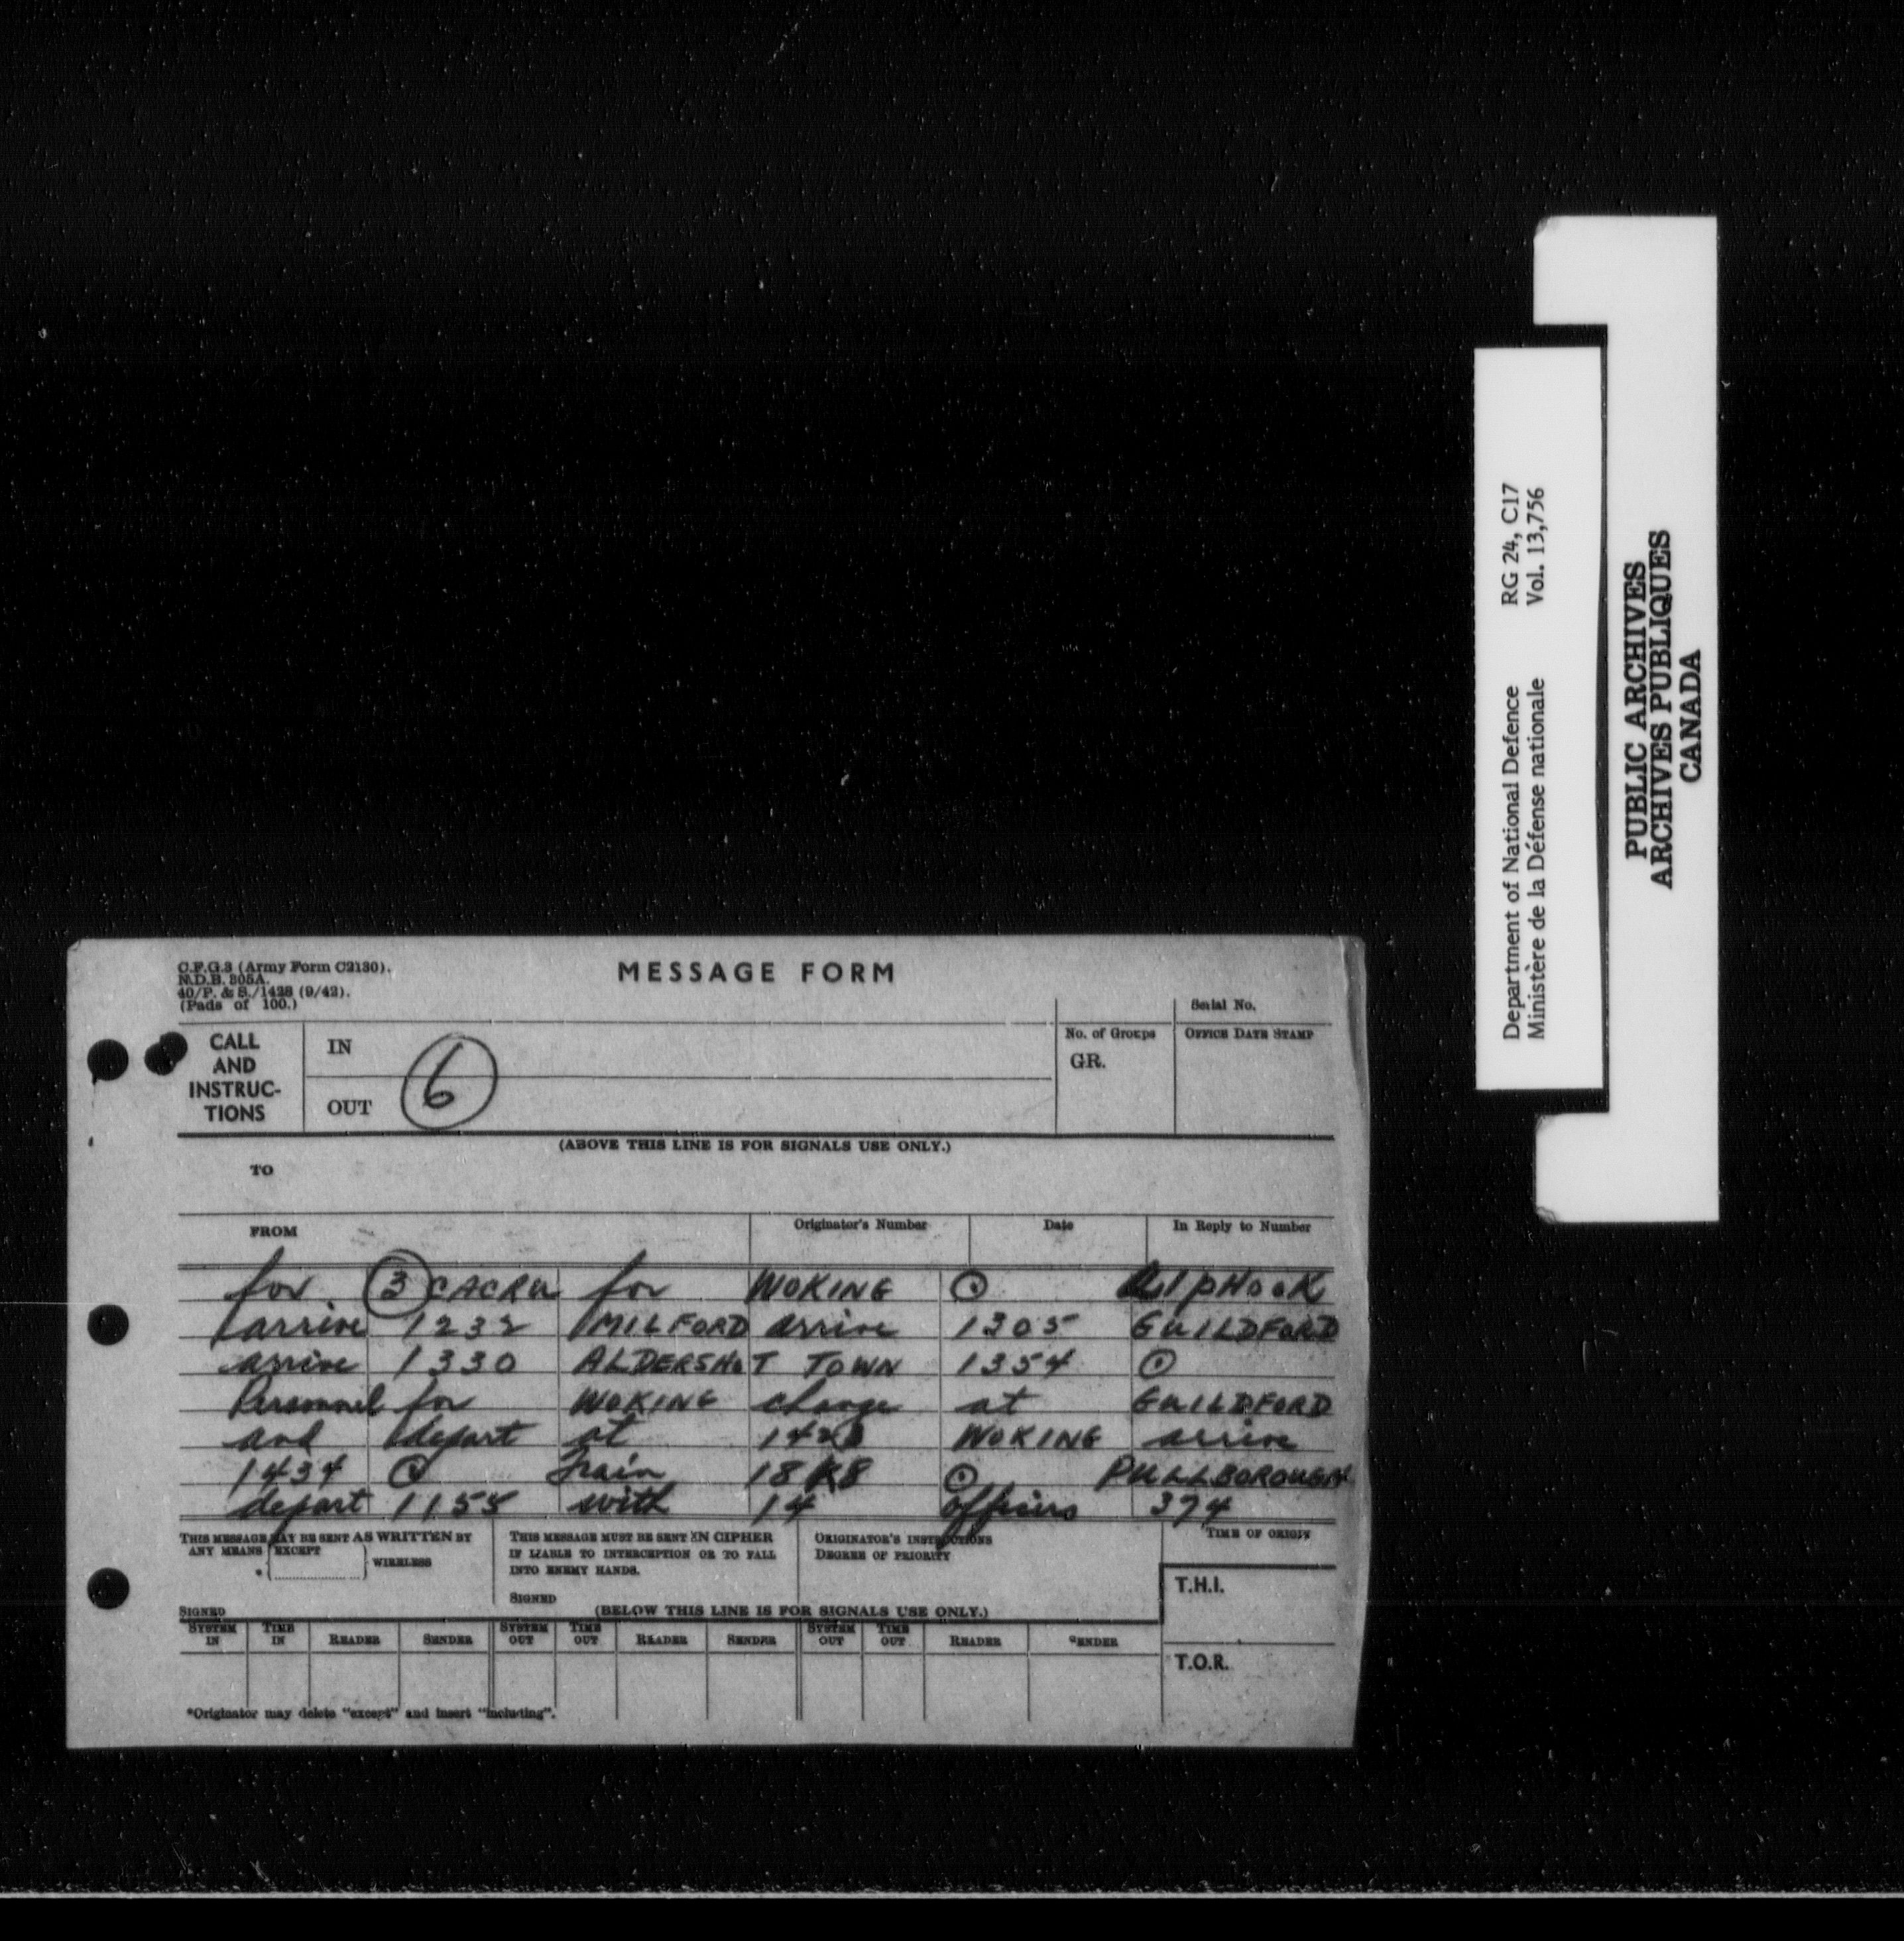 C.F.G.3 (Army Form C2130).
N.D.B. 305A.
40/P. & S./1428 (9/42).
(Pads of 100.)
MESSAGE FORM
Serial No.
CALL AND INSTRUC-TIONS
IN
OUT
6
No. of Groups
GR.
OFFICE DATE STAMP
(ABOVE THIS LINE IS FOR SIGNALS USE ONLY.)
TO
FROM
Originator's Number
Date
In Reply to Number
for 3 CACRU for WOKING ⊙ LIPHOOK
arrive 1232 MILFORD arrive 1305 GUILDFORD
arrive 1330 ALDERSHOT TOWN 1354 ⊙
Personnel for WOKING change at GUILDFORD
and depart at WOKING arrive
1434 ⊙ Train 18K8 ⊙ PULLBOROUGH
depart 1154 with 14 officers 374
THIS MESSAGE MAY BE SENT AS WRITTEN BY
ANY MEANS EXCEPT
* WIRELESS
SIGNED
THIS MESSAGE MUST BE SENT IN CIPHER
IF LIABLE TO INTERCEPTION OR TO FALL
INTO ENEMY HANDS.
SIGNED
ORIGINATOR'S INSTRUCTIONS
DEGREE OF PRIORITY
TIME OF ORIGIN
T.H.I.
(BELOW THIS LINE IS FOR SIGNALS USE ONLY.)
SYSTEM IN TIME IN READER SENDER SYSTEM OUT TIME OUT READER SENDER SYSTEM OUT TIME OUT READER SENDER
T.O.R.
*Originator may delete "except" and insert "including".
Department of National Defence RG 24, C17
Ministère de la Défense nationale Vol. 13,756
PUBLIC ARCHIVES
ARCHIVES PUBLIQUES
CANADA